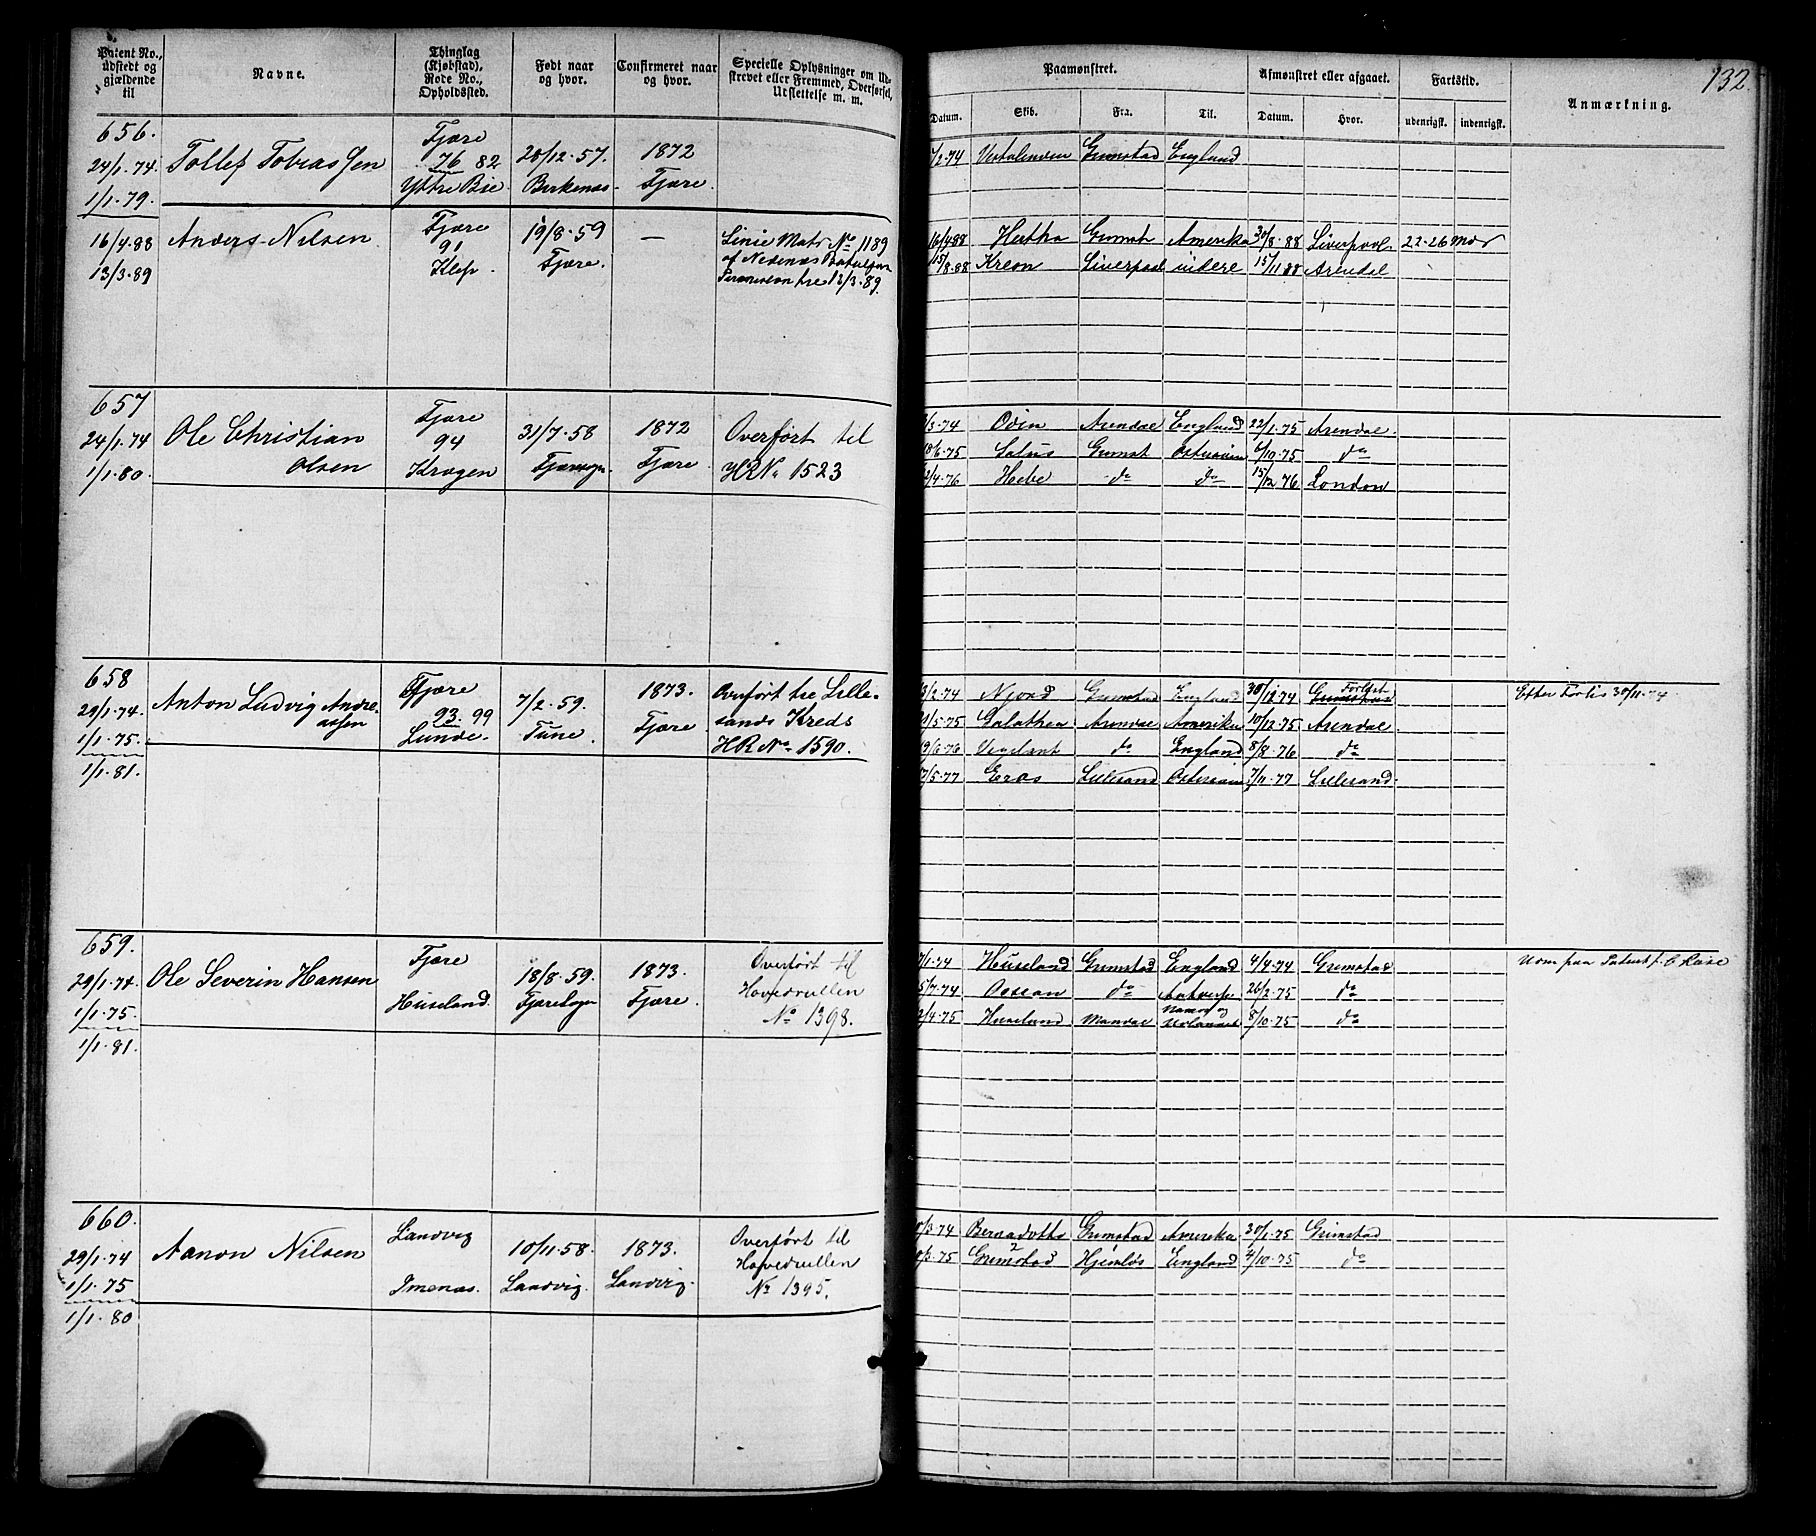 132.
Patent No., udstedt og gjældende til
Navne.
Thinglag (Kjøbstad), Rode No., Opholdssted.
Født naar og hvor.
Confirmeret naar og hvor.
Specielle Oplysninger om Udskrevet eller Fremmed, Overførsel, Udslettelse m. m.
Paamønstret.
Afmønstret eller afgaaet.
Fartstid.
Anmærkning.
Datum.
Skib.
Fra.
Til.
Datum.
Hvor.
udenrigsk.
indenrigsk.
656. Fjære
24/1.74 Tollef Tobiassen 76 82 20/12.57. 1872 /2.74 Grimstad England
1/1.79. Yttre Bie Birkenæs Fjære.
16/4.88 Anders Nilsen Fjære 19/8.59 — Linie Matr No 1189 16/4.88 Hertha Grmst. Amerika 30/8.88 Liverpool 22.26 mdr
13/3.89 91 Fjære. af Nedenæs 15/8.88 Kreon Liverpool indere 15/11.88 Arendal
Klep. 13/3.89.
657 Fjære
24/1.74 Ole Christian Olsen 94 31/7.58 1872 Overført til /3.74 Odin Arendal England 22/1.75 Arendal.
1/1.80. Krogen Fjæresogn Fjære. HR No 1523 /6.75 Salus Grmst Østersøen 6/10.75 do
/4.76 Hebe do do 15/12 76 London
658 Fjære
29/1.74. Anton Ludvig Andreassen 93. 99 7/2.59. 1873. Overført til Lille- 3/2.74 Njord Grimstad England 30/12.74 Forlist Efter Forlis 30/11.74
1/1.75. Lunde. Tune. Fjære. sands Kreds /5.75 Galathea Arendal Amerika 10/12.75 Arendal
1/1.81. HR No 1590. 9/6.76 do England 8/8.76 do
7/5.77 Eros Lillesand Østersøen 7/11.77 Lillesand.
659. Fjære
29/1.74. Ole Severin Hansen Huseland. 18/8.59. 1873. Overført til /1.74 Huseland Grimstad England 4/4.74 Grimstad
1/1.75. Fjæresogn Fjære. Hovedrullen 5/7.74 Ossian do Antwerp. 26/2.75 do
1/1.81. No 1398. 2/4.75 Huseland Mandal 8/10.75 do
660. Landvig
29/1.74 Aanon Nilsen Imenæs. 10/11.58. 1873. Overført til /3.74 Bernadotte Grimstad Amerika 30/1.75 Grimstad
1/1.75 Landvig. Landvig. Hovedrullen /3.75 Grimstad Hjemløs England 4/10.75 do
1/1.80 No 1395.